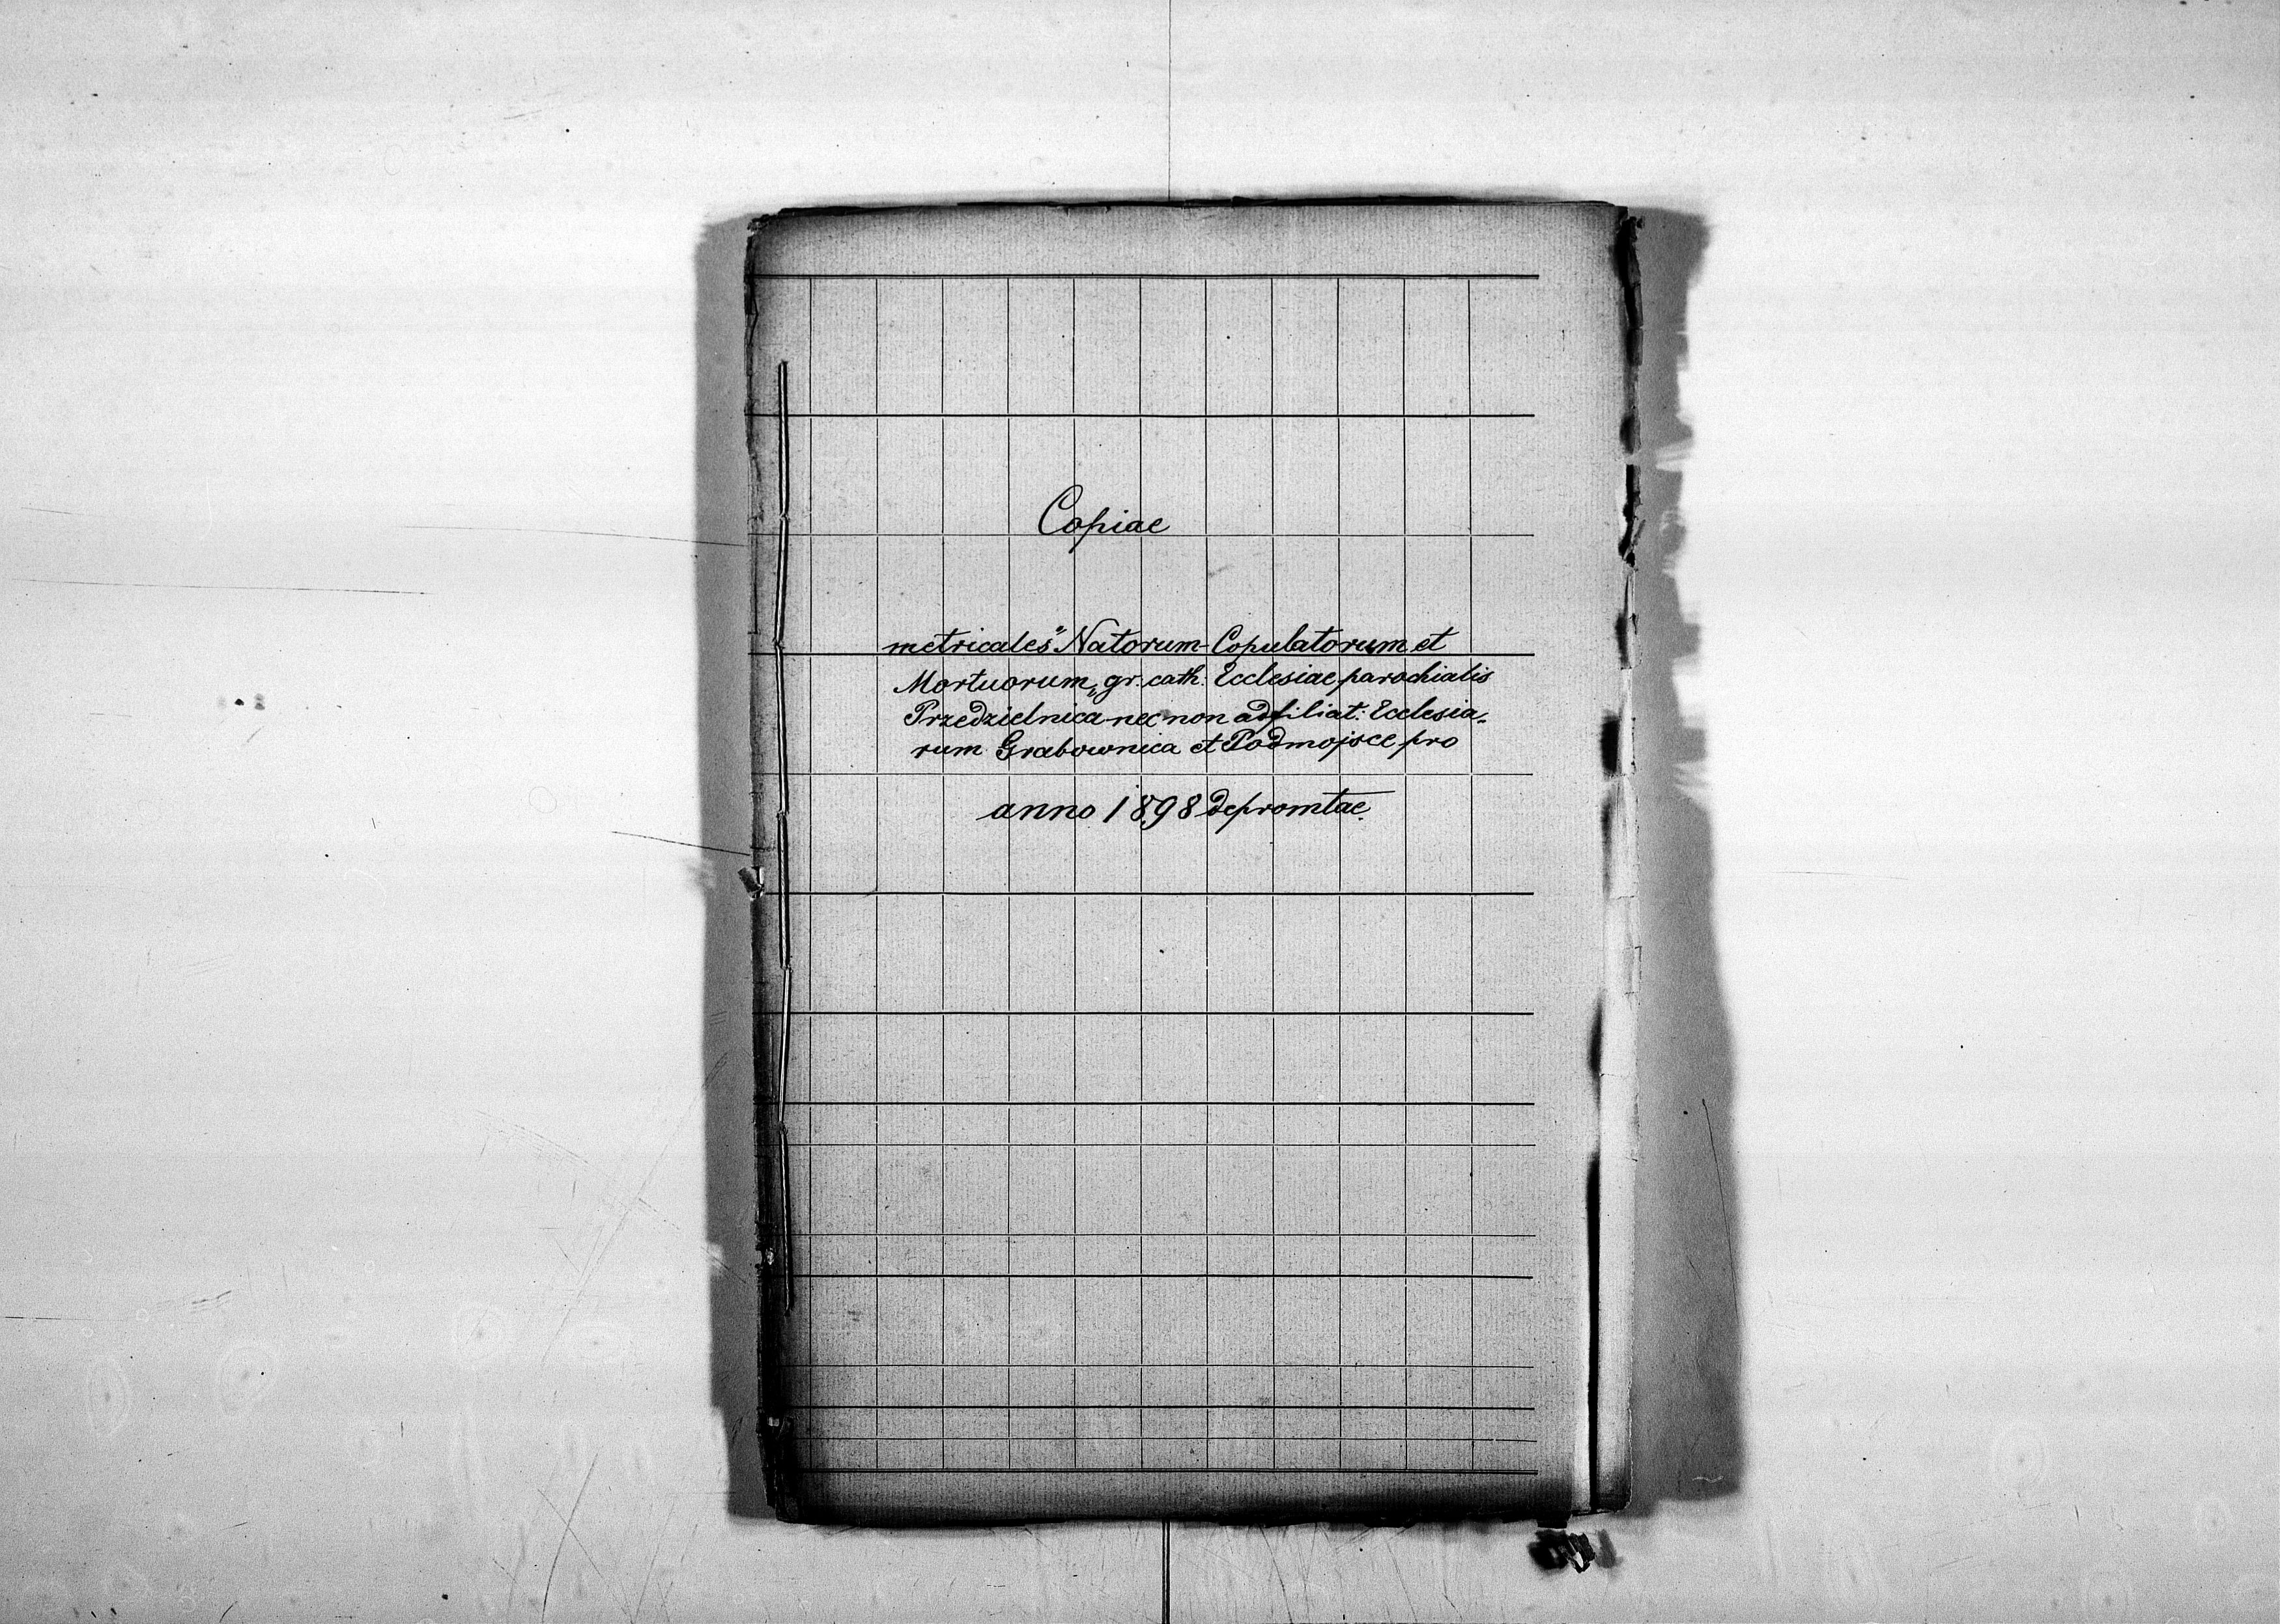 Copiae
metricales "Natorum-Copulatorum et
Mortuorum„ gr. cath: Ecclesiae parochialis
Przedzielnica nec non adfiliat: Ecclesia„
rum Grabownica et Podmojsce pro
anno 1898 depromtae.